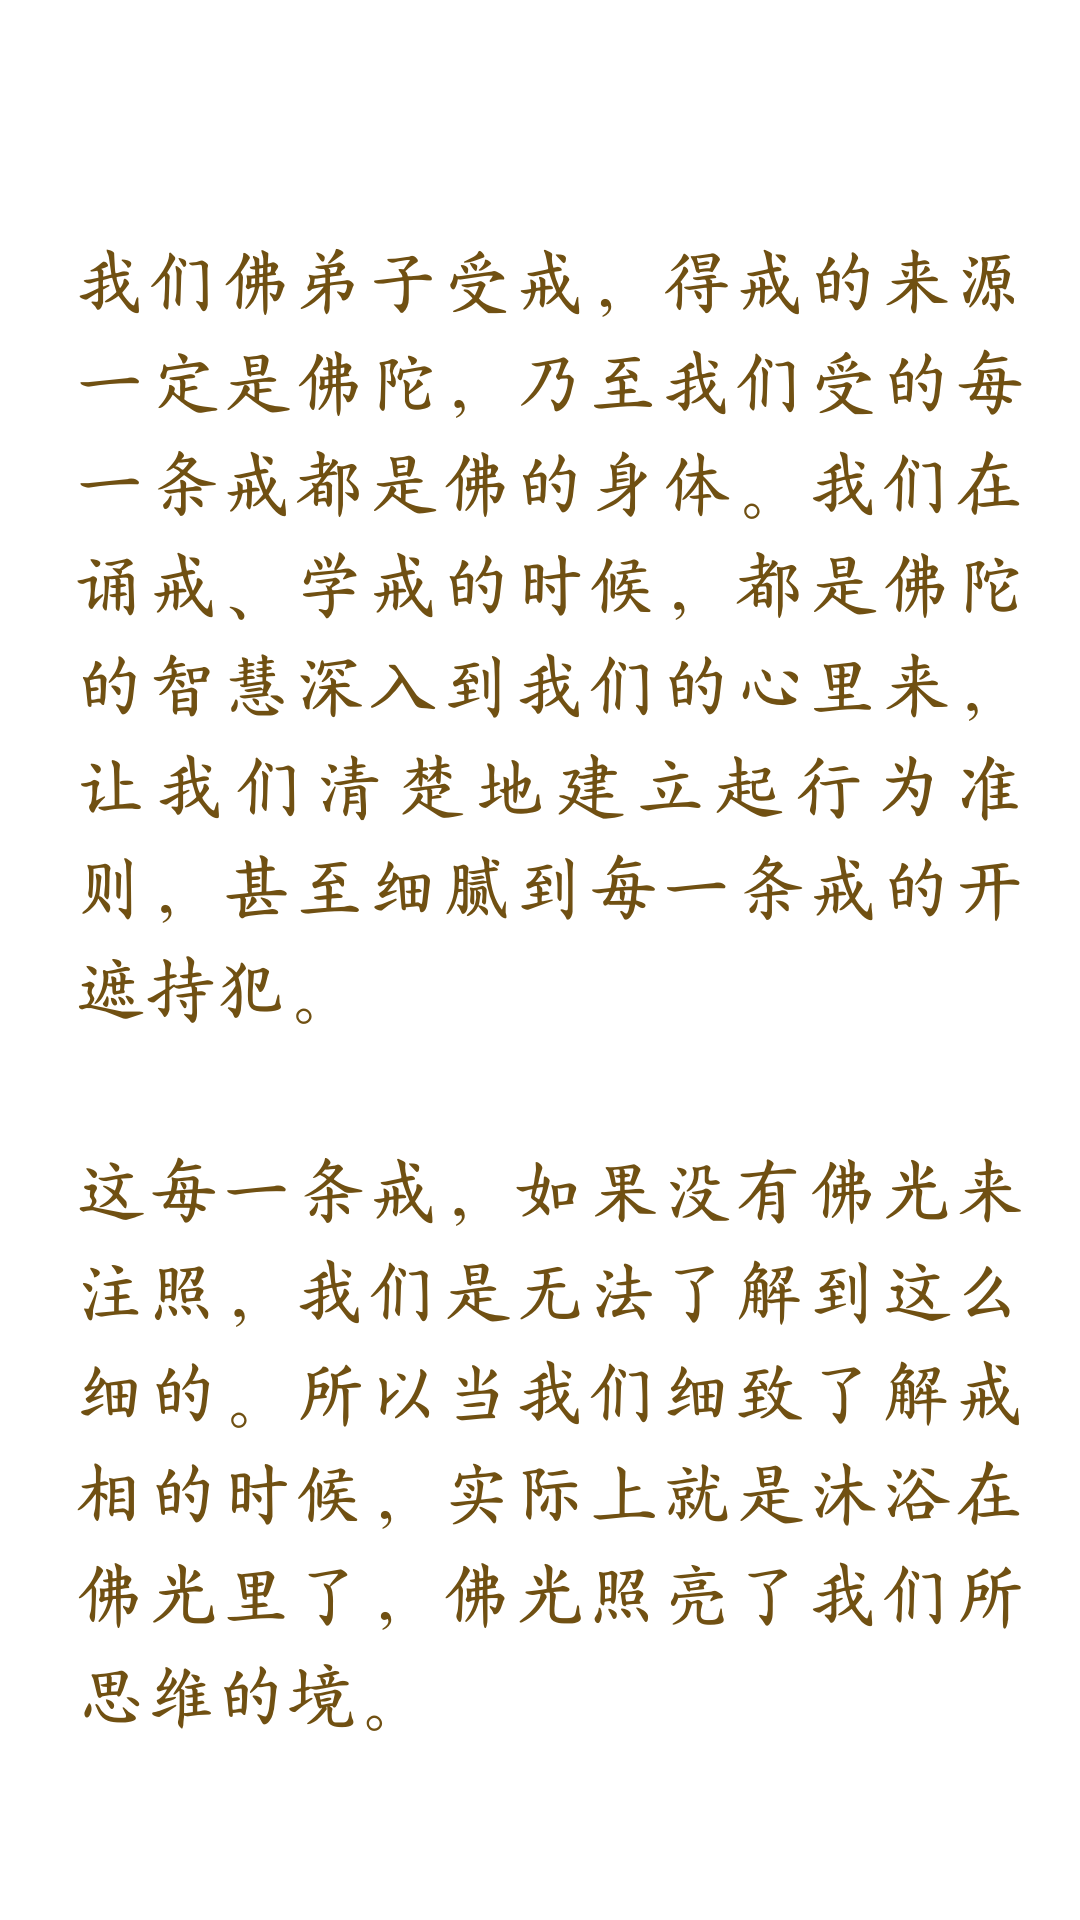 我们佛弟子受戒，得戒的来源
一定是佛陀，乃至我们受的每
一条戒都是佛的身体。我们在
诵戒、学戒的时候，都是佛陀
的智慧深入到我们的心里来，
让我们清楚地建立起行为准
则，甚至细腻到每一条戒的开
遮持犯。
这每一条戒，如果没有佛光来
注照，我们是无法了解到这么
细的。所以当我们细致了解戒
相的时候，实际上就是沐浴在
佛光里了，佛光照亮了我们所
思维的境。